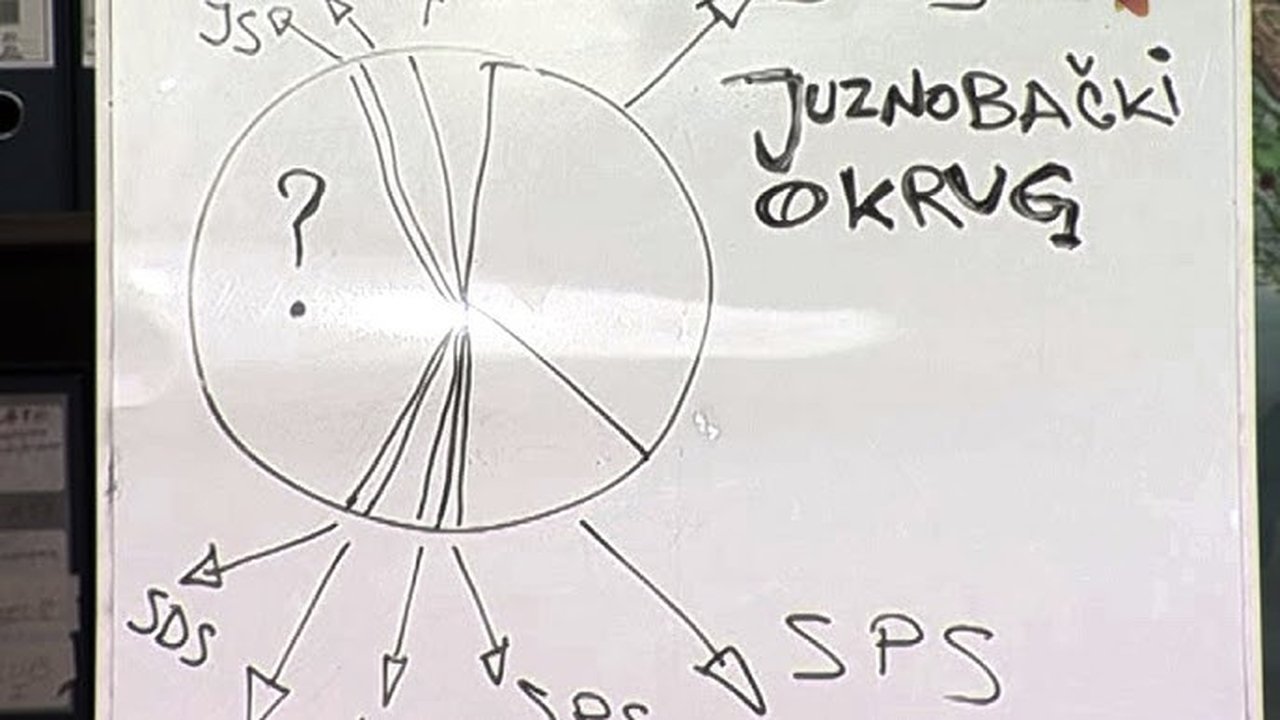 JS
JUZNOBAČKI
OKRUG
?
SDS
SPS